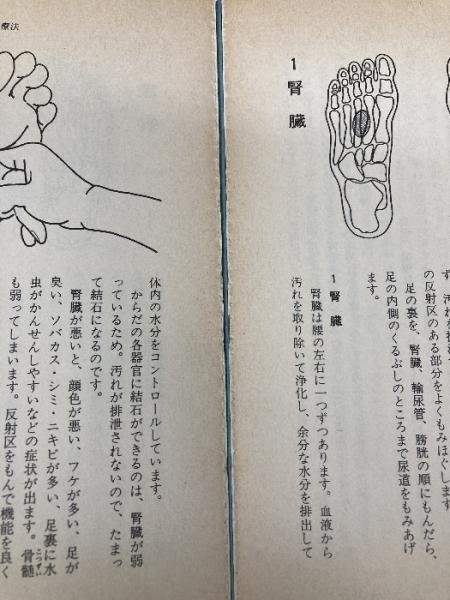 療法
1 腎臓
ず、汚れを
の反射区のある部分をよくもみほぐします
足の裏を、腎臓、輸尿管、膀胱の順にもんだら、
足の内側のくるぶしのところまで尿道をもみあげ
ます。
1 腎臓
腎臓は腰の左右に一つずつあります。血液から
汚れを取り除いて浄化し、余分な水分を排出して
体内の水分をコントロールしています。
からだの各器官に結石ができるのは、腎臓が弱
っているため。汚れが排泄されないので、たまっ
て結石になるのです。
腎臓が悪いと、顔色が悪い、フケが多い、足が
臭い、ソバカス・シミ・ニキビが多い、足裏に水
虫がかんせんしやすいなどの症状が出ます。骨髄
こつずい
も弱ってしまいます。反射区をもんで機能を良く